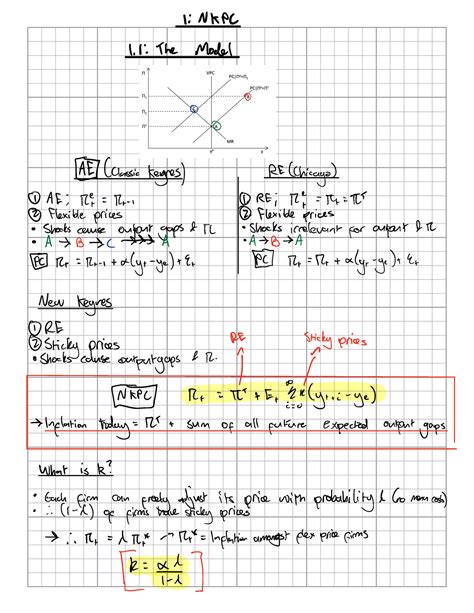 1: NKPC
1.1: The Model
π VPC PC(π^e=π₁)
π₁ B PC(π^e=π^T)
π₂ C
π^T A
MR
x
AE (Classic Keynes)
① AE; π_t^e = π_{t-1}
② Flexible prices
• Shocks cause output gaps & π
• A → B → C →→→→ A
PC π_t = π_{t-1} + α(y_t - y_e) + ε_t
RE (Chicago)
① RE; π_t^e = π_t = π^T
② Flexible prices
• Shocks irrelevant for output & π
• A → B → A
PC π_t = π_t + α(y_t - y_e) + ε_t
New Keynes
① RE
② Sticky prices
• Shocks cause output gaps & π.
RE Sticky prices
NKPC π_t = π^T + E_t Σ_{i=0}^∞ k (y_{t+i} - y_e)
→ Inflation today = π^T + sum of all future expected output gaps
What is k?
• Each firm can freely adjust its price with probability λ (no menu costs)
• ∴ (1-λ) of firms have sticky prices
→ ∴ π_t = λ π_t^* → π^* = inflation amongst flex price firms
k = αλ / 1-λ